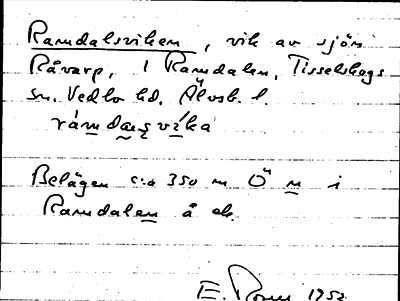 Ramdalsviken, vik av sjön
Råvarp, i Ramdalen, Tisselskogs
sn. Vedbo hd, Älvsb. l.
ràmdaɳsvika
Belägen c:a 350 m Ö n i
Ramdalen å ek.
E. 1952